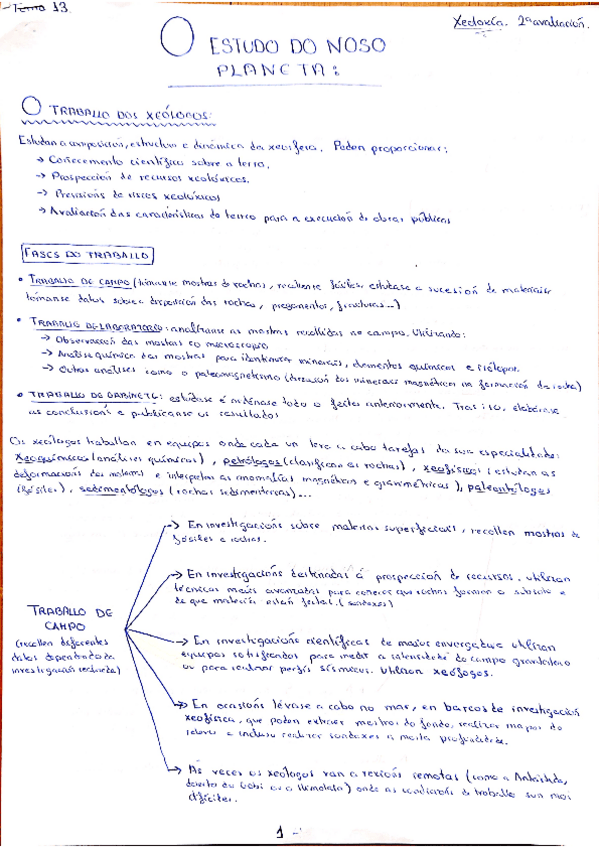 Tema 13
Xeoloxía. 2ª avaliación.
O ESTUDO DO NOSO
PLANETA:
O TRABALLO DOS XEÓLOGOS:
Estudan a composición, estructura e dinámica da xeosfera. Poden proporcionar:
→ Coñecemento científico sobre a terra.
→ Prospección de recursos xeolóxicos.
→ Previsións de riscos xeolóxicos
→ Avaliación das características do terreo para a execución de obras públicas
FASES DO TRABALLO
• TRABALLO DE CAMPO (tómanse mostras de rochas, recóllense fósiles, estúdase a sucesión de materiais
tómanse datos sobre a disposición das rochas, pregamentos, fracturas...)
• TRABALLO DE LABORATORIO: analízanse as mostras recollidas no campo. Utilizando:
→ Observación das mostras co microscopio
→ Análise química das mostras para identificar minerais, elementos químicos e isótopos.
→ Outros análises como o paleomagnetismo (dirección dos minerais magnéticos na formación da rocha)
• TRABALLO DE GABINETE: estúdase e ordénase todo o feito anteriormente. Tras iso, elabóranse
as conclusións e publícanse os resultados
Os xeólogos traballan en equipos onde cada un leva a cabo tarefas da súa especialidade:
Xeoquímicos (análises químicos), petrólogos (clasifican as rochas), xeofísicos (estudan as
deformacións dos materiais e interpretan as anomalías magnéticas e gravimétricas), paleontólogos
(fósiles), sedimentólogos (rochas sedimentarias)...
TRABALLO DE
CAMPO
(recollen diferentes
datos dependendo da
investigación realizada)
→ En investigacións sobre materias superficiais, recollen mostras de
fósiles e rochas.
→ En investigacións destinadas á prospección de recursos. utilizan
técnicas máis avanzadas para coñecer que rochas forman o subsolo e
de que materia están feitas. (sondaxes)
→ En investigacións científicas de maior envergadura utilizan
equipos sofisticados para medir a intensidade do campo gravitatorio
ou para realizar perfís sísmicos. Utilizan xeófogos.
→ En ocasións lévase a cabo no mar, en barcos de investigación
xeofísica, que poden extraer mostras do fondo, realizar mapas do
relevo e incluso realizar sondaxes a moita profundidade.
→ Ás veces os xeólogos van a rexións remotas (como a Antártida,
deserto do Gobi ou o Himalaia) onde as condicións de traballo son moi
difíciles.
1 -